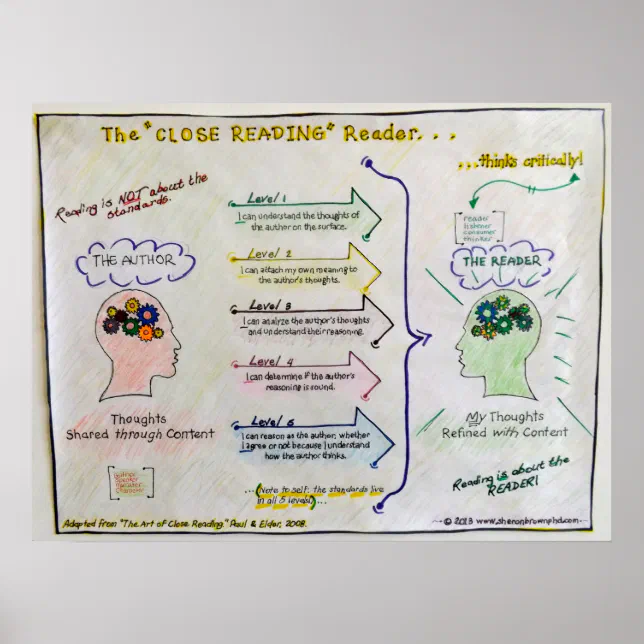 The "CLOSE READING" Reader...
...thinks critically!
Reading is NOT about the
standards.
THE AUTHOR
Thoughts
Shared through Content
Level 1
I can understand the thoughts of
the author on the surface.
Level 2
I can attach my own meaning to
the author's thoughts.
Level 3
I can analize the author's thoughts
and understand their reasoning.
Level 4
I can determine if the author's
reasoning is sound.
Level 5
I can reason as the author, whether
I agree or not because I understand
how the author thinks.
...(Note to self: the standards live
in all 5 levels)...
reader
listener
consumer
thinker
THE READER
My Thoughts
Refined with Content
Reading is about the
READER!
Adapted from "The Art of Close Reading," Paul & Elder, 2008.
© 2013 www.sheronbrownphd.com